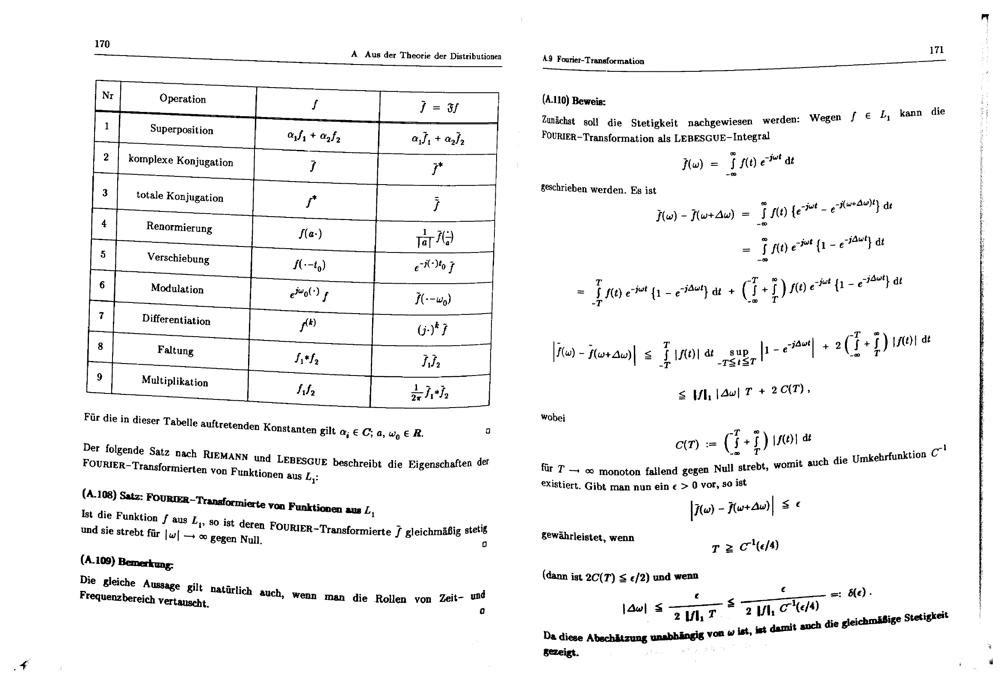 170
A Aus der Theorie der Distributionen
Nr Operation f f̃ = 𝔉f
1 Superposition α₁f₁ + α₂f₂ α₁f̃₁ + α₂f̃₂
2 komplexe Konjugation f̃ f̃*
3 totale Konjugation f*
4 Renormierung f(a·) 1/|a| f̃(·/a)
5 Verschiebung f(·−t₀) e^{−j(·)t₀} f̃
6 Modulation e^{jω₀(·)} f f̃(·−ω₀)
7 Differentiation f^{(k)} (j·)^k f̃
8 Faltung f₁*f₂ f̃₁f̃₂
9 Multiplikation f₁f₂ 1/2π f̃₁*f̃₂
Für die in dieser Tabelle auftretenden Konstanten gilt αᵢ ∈ C; a, ω₀ ∈ R. □
Der folgende Satz nach RIEMANN und LEBESGUE beschreibt die Eigenschaften der
FOURIER−Transformierten von Funktionen aus L₁:
(A.108) Satz: FOURIER−Transformierte von Funktionen aus L₁
Ist die Funktion f aus L₁, so ist deren FOURIER−Transformierte f̃ gleichmäßig stetig
und sie strebt für |ω| → ∞ gegen Null. □
(A.109) Bemerkung:
Die gleiche Aussage gilt natürlich auch, wenn man die Rollen von Zeit− und
Frequenzbereich vertauscht. □
A.9 Fourier−Transformation
171
(A.110) Beweis:
Zunächst soll die Stetigkeit nachgewiesen werden: Wegen f ∈ L₁ kann die
FOURIER−Transformation als LEBESGUE−Integral
f̃(ω) = ∫_{−∞}^{∞} f(t) e^{−jωt} dt
geschrieben werden. Es ist
f̃(ω) − f̃(ω+Δω) = ∫_{−∞}^{∞} f(t) {e^{−jωt} − e^{−j(ω+Δω)t}} dt
= ∫_{−∞}^{∞} f(t) e^{−jωt} {1 − e^{−jΔωt}} dt
= ∫_{−T}^{T} f(t) e^{−jωt} {1 − e^{−jΔωt}} dt + (∫_{−∞}^{−T} + ∫_{T}^{∞}) f(t) e^{−jωt} {1 − e^{−jΔωt}} dt
|f̃(ω) − f̃(ω+Δω)| ≦ ∫_{−T}^{T} |f(t)| dt sup_{−T≦t≦T} |1 − e^{−jΔωt}| + 2 (∫_{−∞}^{−T} + ∫_{T}^{∞}) |f(t)| dt
≦ ‖f‖₁ |Δω| T + 2 C(T) ,
wobei
C(T) := (∫_{−∞}^{−T} + ∫_{T}^{∞}) |f(t)| dt
für T → ∞ monoton fallend gegen Null strebt, womit auch die Umkehrfunktion C⁻¹
existiert. Gibt man nun ein ϵ > 0 vor, so ist
|f̃(ω) − f̃(ω+Δω)| ≦ ϵ
gewährleistet, wenn
T ≧ C⁻¹(ϵ/4)
(dann ist 2C(T) ≦ ϵ/2) und wenn
|Δω| ≦ ϵ / (2 ‖f‖₁ T) ≦ ϵ / (2 ‖f‖₁ C⁻¹(ϵ/4)) =: δ(ϵ) .
Da diese Abschätzung unabhängig von ω ist, ist damit auch die gleichmäßige Stetigkeit
gezeigt.